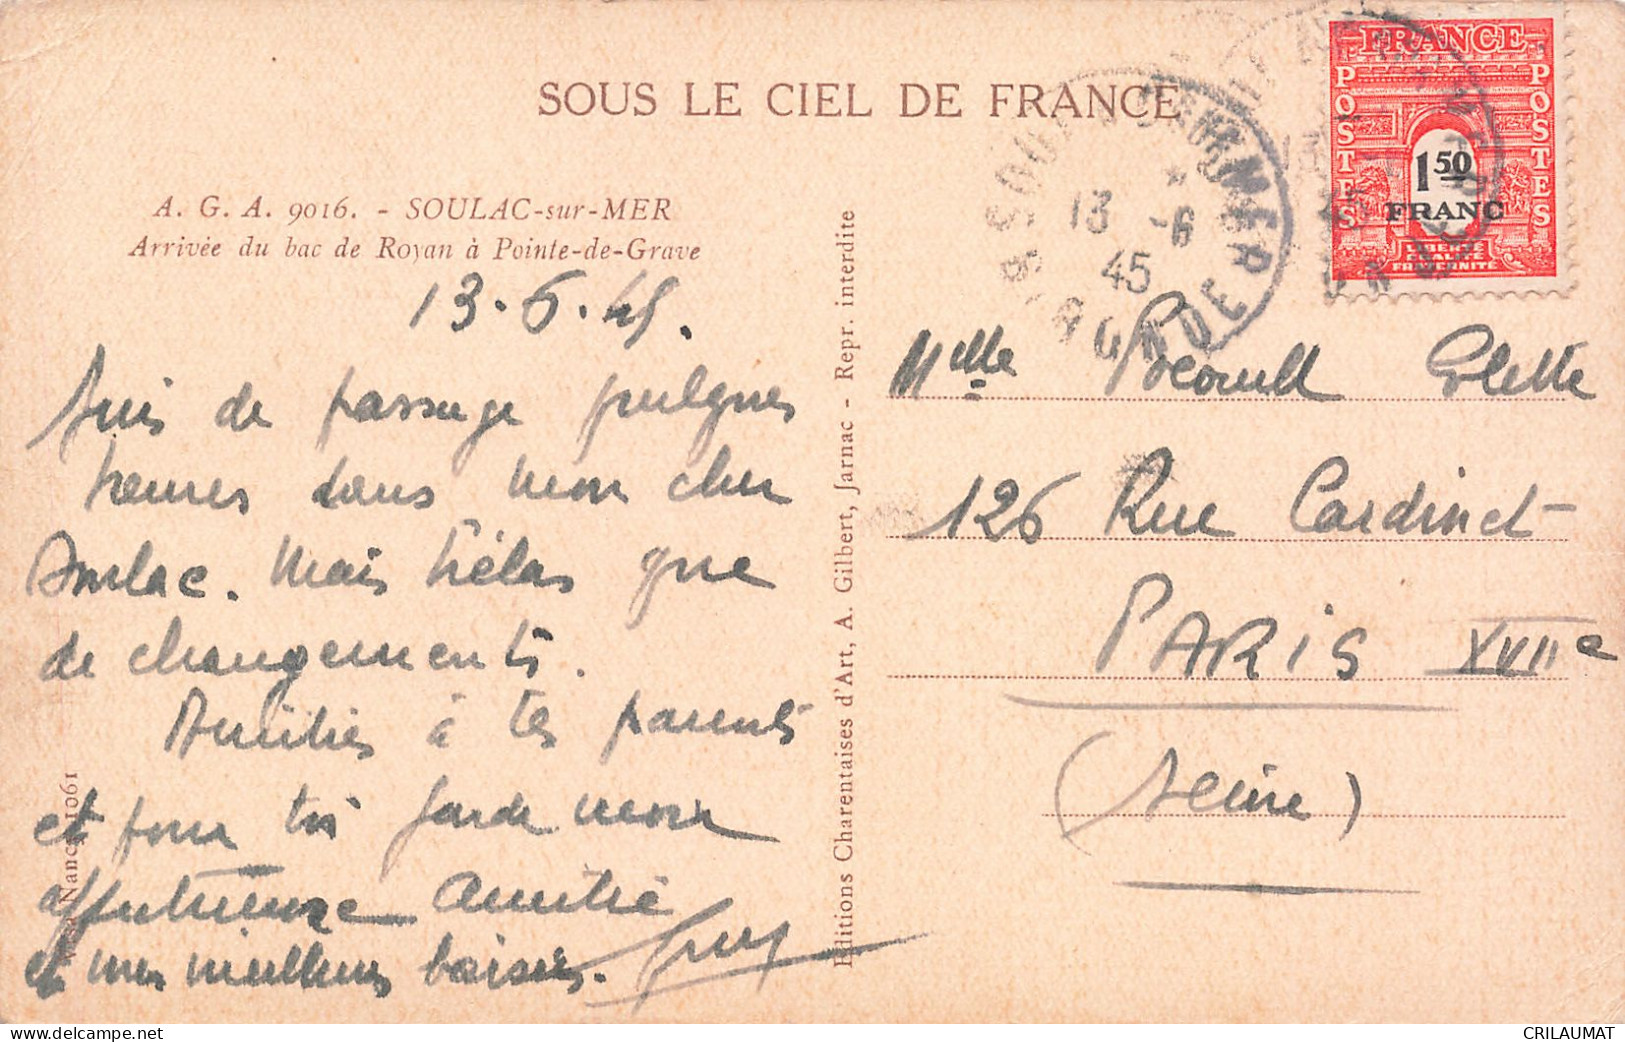 SOUS LE CIEL DE FRANCE
A. G. A. 9016. - SOULAC-sur-MER
Arrivée du bac de Royan à Pointe-de-Grave
13.6.45.
Suis de passage quelques
heures dans mon cher
Soulac. Mais hélas que
de changements.
Amitiés à tes parents
et pour toi garde mon
affectueuse amitié
et mes meilleurs baisers. Guy
Editions Charentaises d'Art, A. Gilbert, Jarnac - Repr. interdite
Nancy 11061
SOULAC-SUR-MER
13 -6
45
GIRONDE
FRANCE
POSTES
POSTES
1 50
FRANC
LIBERTÉ
EGALITÉ
FRATERNITÉ
Mlle Colette
126 Rue Cardinet
PARIS XVIIe
(Seine)
CRILAUMAT
www.delcampe.net